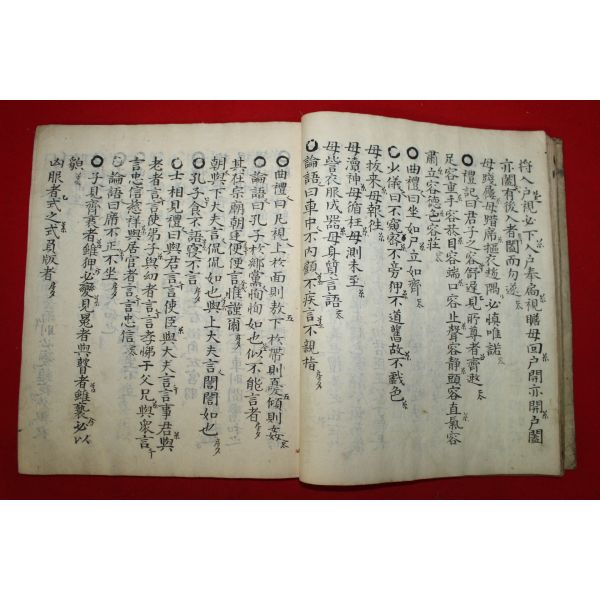 將入户視必下入户奉扃視瞻毋回户開亦開户闔
亦闔有後入者闔而勿遂
毋踐屨毋踖席摳衣趨隅必慎唯諾
○禮記曰君子之容舒遲見所尊者齊遬
足容重手容恭目容端口容止聲容静頭容直氣容
肅立容德色容莊
○曲禮曰坐如尸立如齊
○少儀曰不窺密不旁狎不道舊故不戱色
毋拔来毋報往
毋瀆神毋循枉毋測未至
毋訾衣服成器毋身質言語
○論語曰車中不内顧不疾言不親指
○曲禮曰凡視上於面則敖下於帶則憂傾則姦
○論語曰孔子於鄉黨恂恂如也似不能言者
其在宗廟朝廷便便言惟謹爾
朝與下大夫言侃侃如也與上大夫言誾誾如也
○孔子食不語寢不言
○士相見禮曰與君言言使臣與大夫言言事君與
老者言言使弟子與幼者言言孝悌于父兄與衆言
言忠信慈祥與居官者言言忠信
○論語曰席不正不坐
○子見齊衰者雖狎必變見冕者與瞽者雖褻必以
貌
凶服者式之式負版者